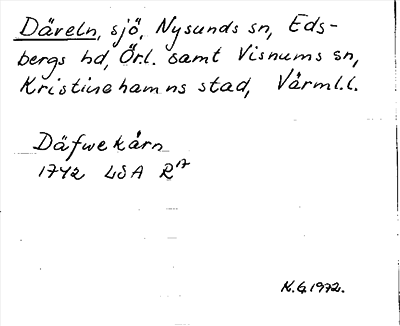 Däveln, sjö, Nysunds sn, Eds-
bergs hd, Örl. samt Visnums sn,
Kristinehamns stad, Värml.l.
Däfwekårn
1742 LSA R17
K.G.1972.